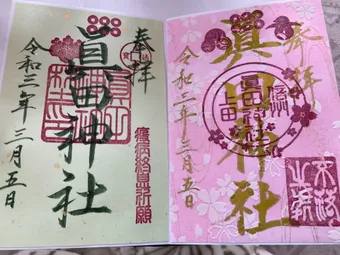 奉拝
真田神社
令和三年三月五日
信州
眞田神社
上田
不落
之城
奉拝
眞田神社
令和三年三月五日